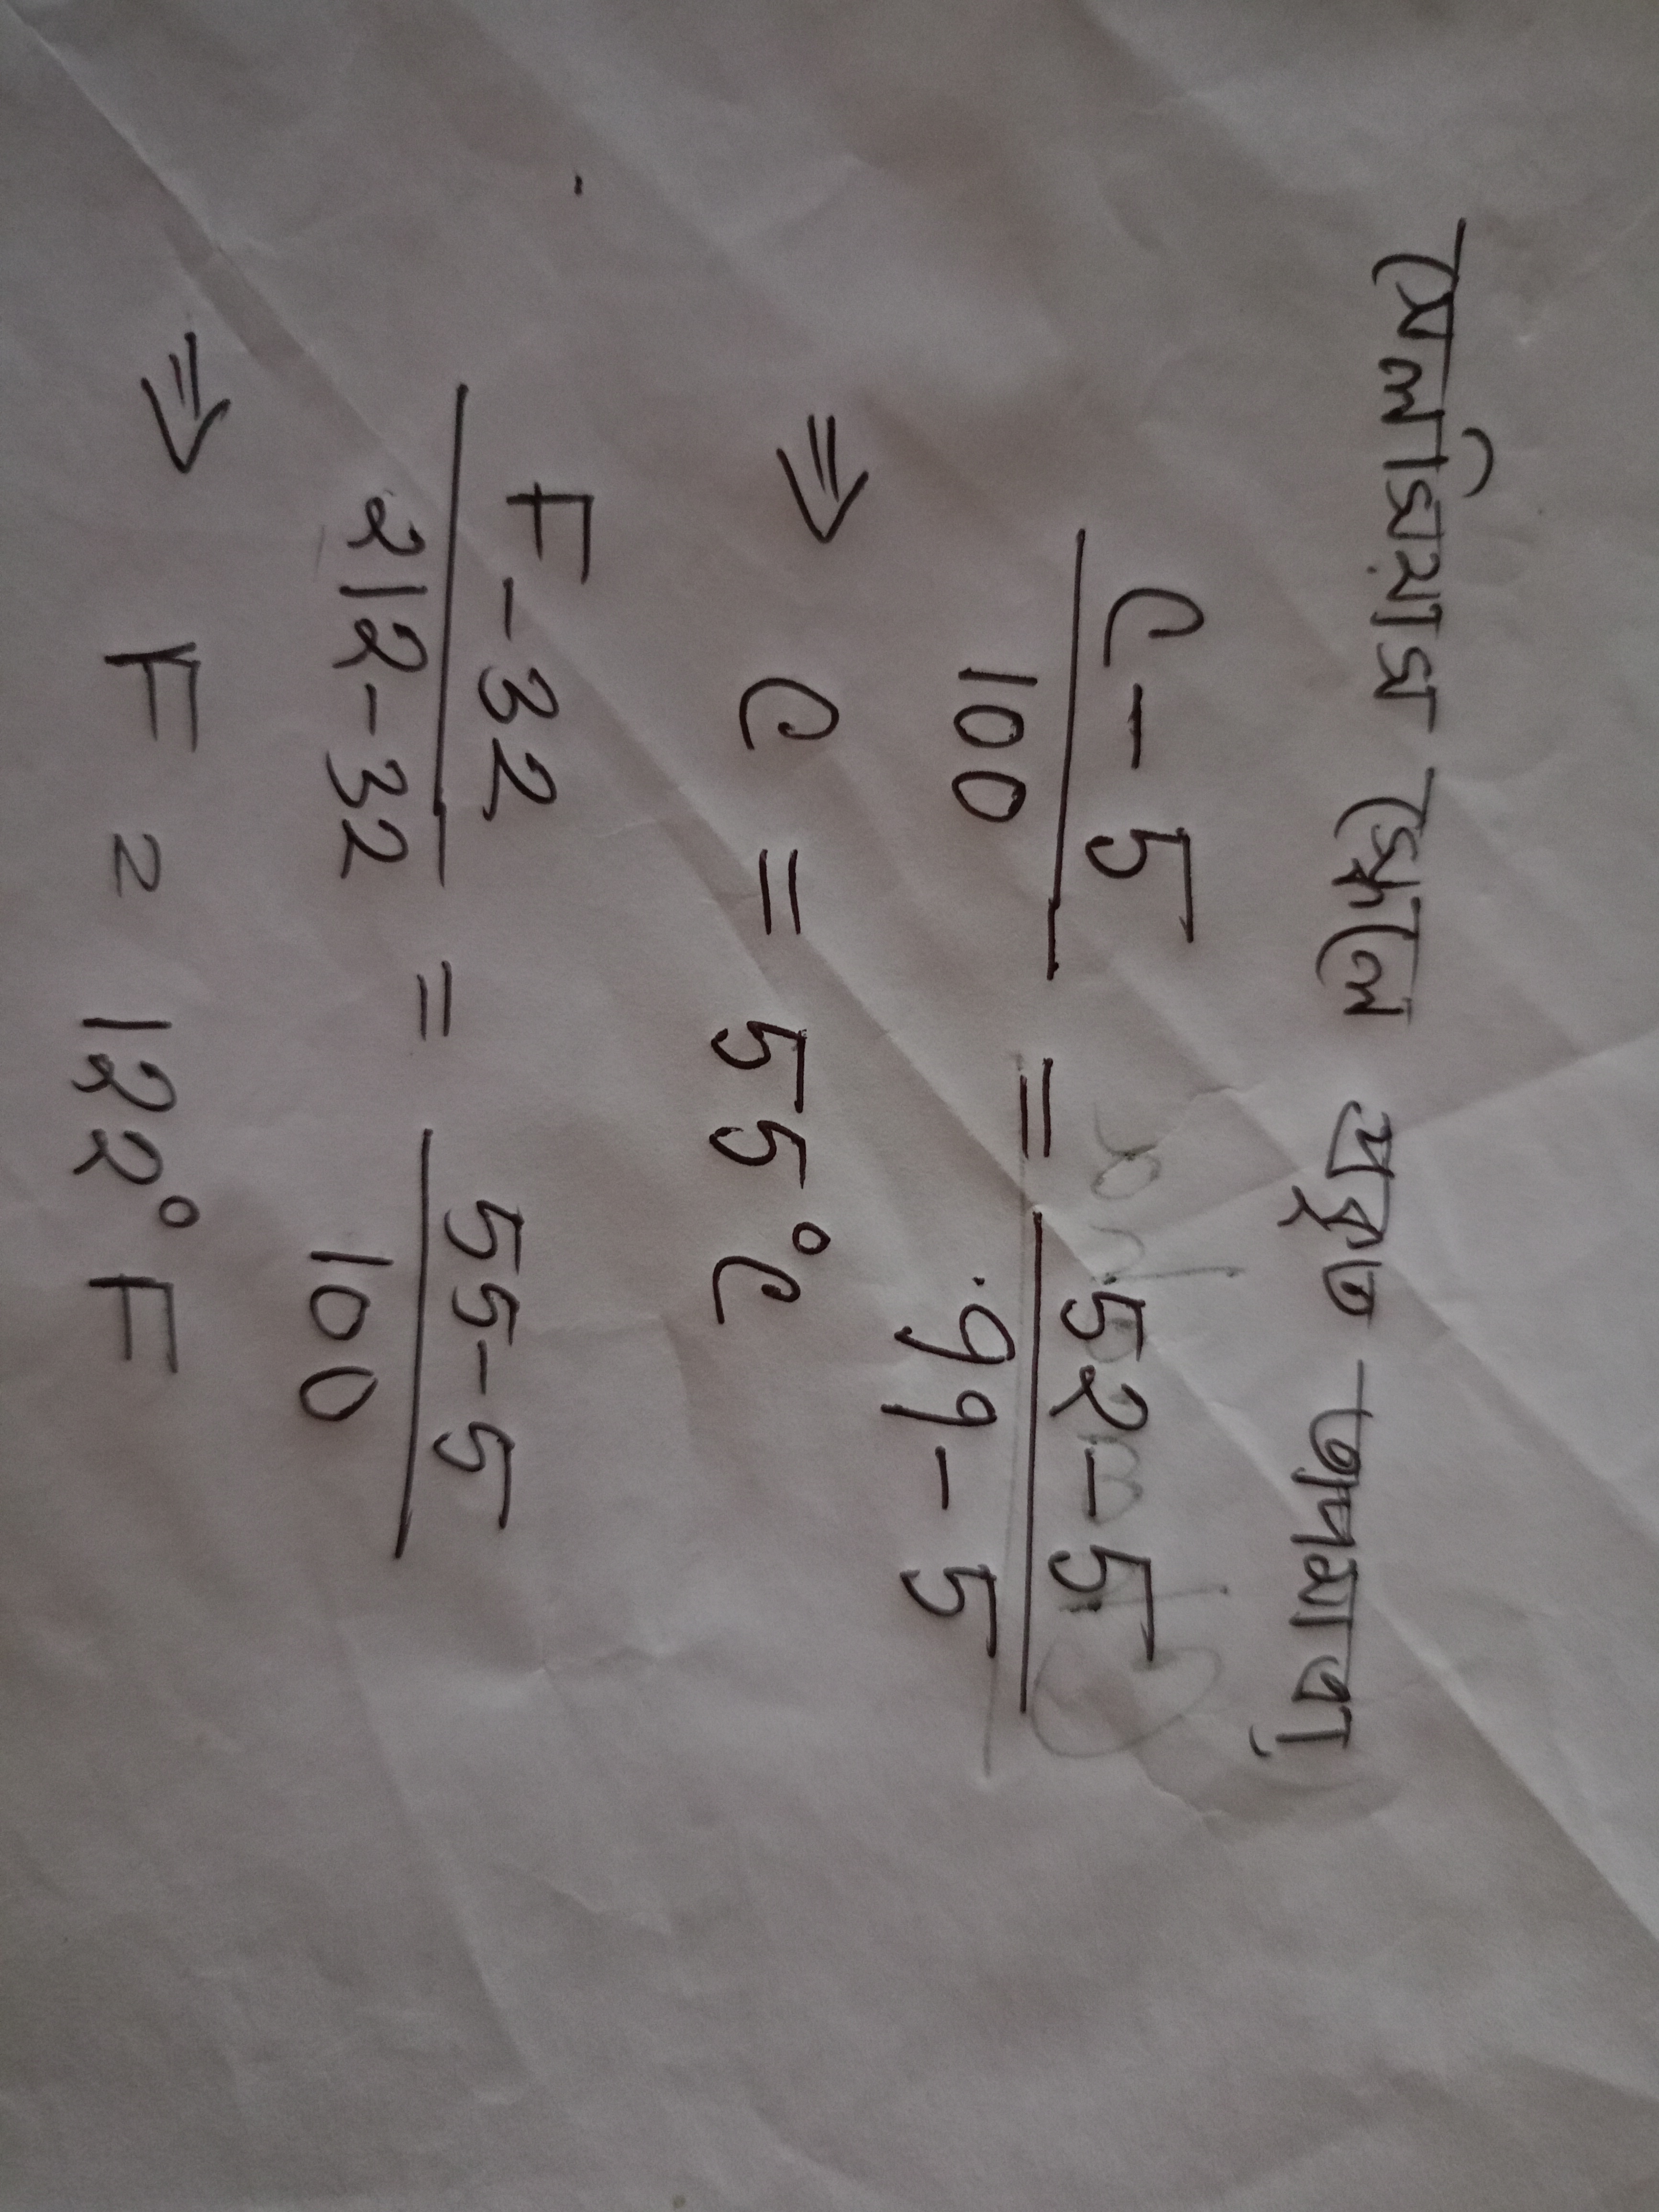 সেলসিয়াস স্কেলে প্রকৃত তাপমাত্রা
C - 5 / 100 = 52 - 5 / 99 - 5
⇒ C = 55°C
F - 32 / 212 - 32 = 55 - 5 / 100
⇒ F = 122°F